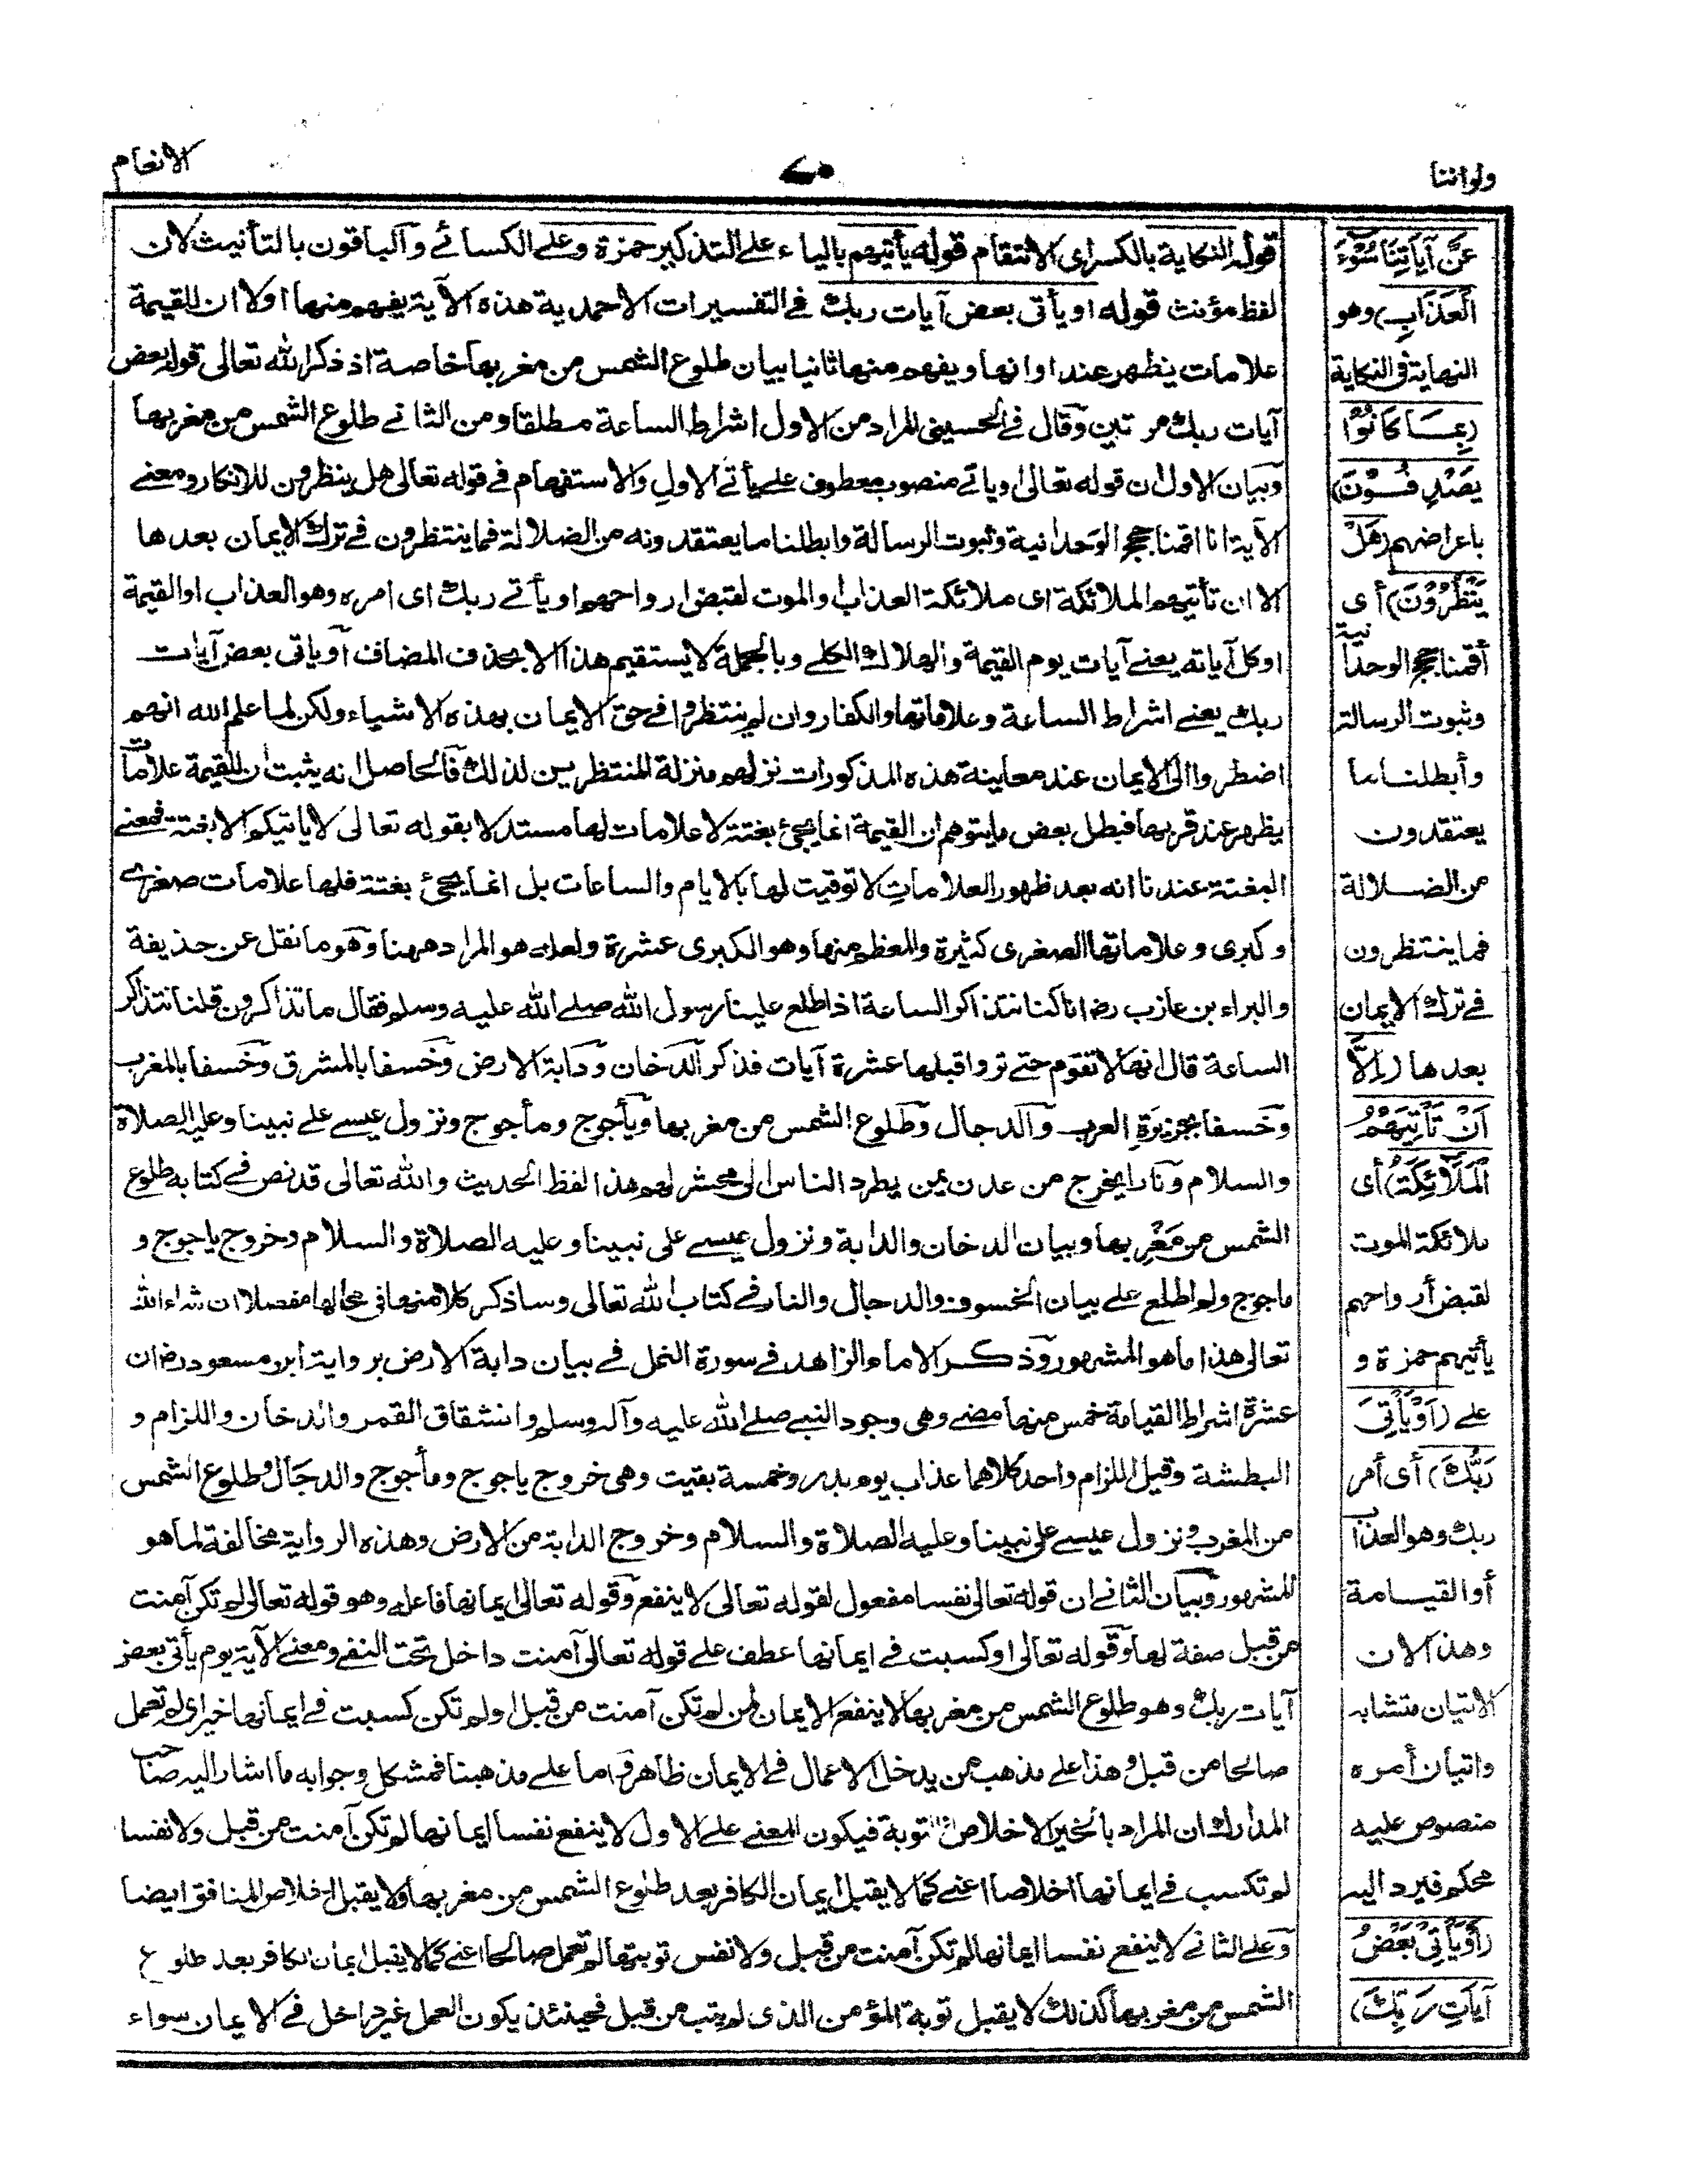 ولواننا
الانعام
عَنْ آيَاتِنَا سُوْٓءَ
الْعَذَابِ) وهو
النهاية فى النكاية
(بِمَا كَانُوْا
يَصْدِفُوْنَ)
باعراضهم (هَلْ
يَنْظُرُوْنَ) أى
أقمنا حجج الوحدانية
وثبوت الرسالة
وأبطلنا ما
يعتقدون
من الضلالة
فما ينتظرون
فے ترك الايمان
بعدها (اِلَّآ
اَنْ تَأْتِيَهُمُ
الْمَلَآئِكَةُ) أى
ملائكة الموت
لقبض أرواحهم
يأتيهم حمزة و
علے (اَوْ يَأْتِيَ
رَبُّكَ) أى أمر
ربك وهو العذاب
أو القيامة
وهذا لان
الاتيان متشابه
واتيان أمره
منصوص عليه
محكم فيرد اليه
(اَوْ يَأْتِيَ بَعْضُ
آيَاتِ رَبِّكَ)
قوله النكاية بالكسر اى الانتقام قوله يأتيهم بالياء علے التذكير حمزة وعلے الكسائے والباقون بالتأنيث لان
لفظ مؤنث قوله او يأتى بعض آيات ربك فے التفسيرات الاحمدية هذه الآية يفهم منها اولا ان للقيمة
علامات يظهر عند اوانها ويفهم منها ثانيا بيان طلوع الشمس من مغربها خاصة اذ ذكر الله تعالى قوله بعض
آيات ربك مرتين وقال فے الحسينى المراد من الاول اشراط الساعة مطلقا ومن الثانے طلوع الشمس من مغربها
وبيان الاول ان قوله تعالى او ياتے منصوب معطوف علے يأتے الاول والاستفهام فے قوله تعالى هل ينظرون للانكار ومعنے
الآية انا اقمنا حجج الوحدانية وثبوت الرسالة وابطلنا ما يعتقدونه من الضلالة فما ينتظرون فے ترك الايمان بعدها
الا ان تأتيهم الملائكة اى ملائكة العذاب او الموت لقبض ارواحهم او يأتے ربك اى امره وهو العذاب او القيمة
او كل آياته يعنے آيات يوم القيمة والهلاك الكلے وبالجملة لا يستقيم هذا الا بحذف المضاف او ياتى بعض آيات
ربك يعنے اشراط الساعة وعلاماتها والكفار وان لم ينتظروا فے حق الايمان بهذه الاشياء ولكن لما علم الله انهم
اضطروا الى الايمان عند معاينة هذه المذكورات نزلهم منزلة المنتظرين لذلك فالحاصل انه يثبت ان للقيمة علامات
يظهر عند قربها فبطل بعض ما يتوهم ان القيمة انما يجئ بغتة لا علامات لها مستدلا بقوله تعالى لا ياتيكم الا بغتة فمعنے
البغتة عندنا انه بعد ظهور العلامات لا توقيت لها بالايام والساعات بل انما يجئ بغتة فلها علامات صغرے
وكبرى وعلاماتها الصغرى كثيرة والمعظم منها وهو الكبرى عشرة ولعله هو المراد ههنا وهو ما نقل عن حذيفة
والبراء بن عازب رض انا كنا نتذاكر الساعة اذا طلع علينا رسول الله صلے الله عليه وسلم فقال ما تذاكرون قلنا نتذاكر
الساعة قال انها لا تقوم حتے تروا قبلها عشرة آيات فذكر الدخان ودابة الارض وخسفا بالمشرق وخسفا بالمغرب
وخسفا بجزيرة العرب والدجال وطلوع الشمس من مغربها ويأجوج ومأجوج ونزول عيسے علے نبينا وعليه الصلاة
والسلام ونارا يخرج من عدن يمن يطرد الناس الى محشر لهم هذا لفظ الحديث والله تعالى قد نص فے كتابه طلوع
الشمس من مغربها وبيان الدخان والدابة ونزول عيسے على نبينا وعليه الصلاة والسلام وخروج ياجوج و
ماجوج ولم اطلع علے بيان الخسوف والدجال والنار فے كتاب الله تعالى وساذكر كلا منها فى محالها مفصلا ان شاء الله
تعالى هذا ما هو المشهور وذكر الامام الزاهد فے سورة النمل فے بيان دابة الارض برواية ابن مسعود رض ان
عشرة اشراط القيامة خمس منها مضے وهى وجود النبے صلے الله عليه وآله وسلم وانشقاق القمر والدخان واللزام و
البطشة وقيل اللزام واحد كلاهما عذاب يوم بدر وخمسة بقيت وهى خروج ياجوج ومأجوج والدجال وطلوع الشمس
من المغرب ونزول عيسے على نبينا وعليه الصلاة والسلام وخروج الدابة من الارض وهذه الرواية مخالفة لما هو
المشهور وبيان الثانے ان قوله تعالى نفسا مفعول لقوله تعالى لا ينفع وقوله تعالى ايمانها فاعله وهو قوله تعالى لم تكن آمنت
من قبل صفة لها وقوله تعالى او كسبت فے ايمانها عطف علے قوله تعالى آمنت داخل تحت النفے ومعنے الآية يوم يأتى بعض
آيات ربك وهو طلوع الشمس من مغربها لا ينفع الايمان لمن لم تكن آمنت من قبل او لم تكن كسبت فے ايمانها خيرا اى لم تعمل
صالحا من قبل وهذا على مذهب من يدخل الاعمال فے الايمان ظاهر واما علے مذهبنا فمشكل وجوابه ما اشار اليه صاحب
المدارك ان المراد بالخير الاخلاص او التوبة فيكون المعنے علے الاول لا ينفع نفسا ايمانها لم تكن آمنت من قبل ولا نفسا
لم تكسب فے ايمانها اخلاصا اعنے كما لا يقبل ايمان الكافر بعد طلوع الشمس من مغربها ولا يقبل اخلاص المنافق ايضا
وعلے الثانے لا ينفع نفسا ايمانها لم تكن آمنت من قبل ولا نفس توبتها لم تعمل صالحا اعنے كما لا يقبل ايمان الكافر بعد طلوع
الشمس من مغربها كذلك لا يقبل توبة المؤمن الذى لم يتب من قبل فحينئذ يكون العمل غير داخل فے الايمان سواء